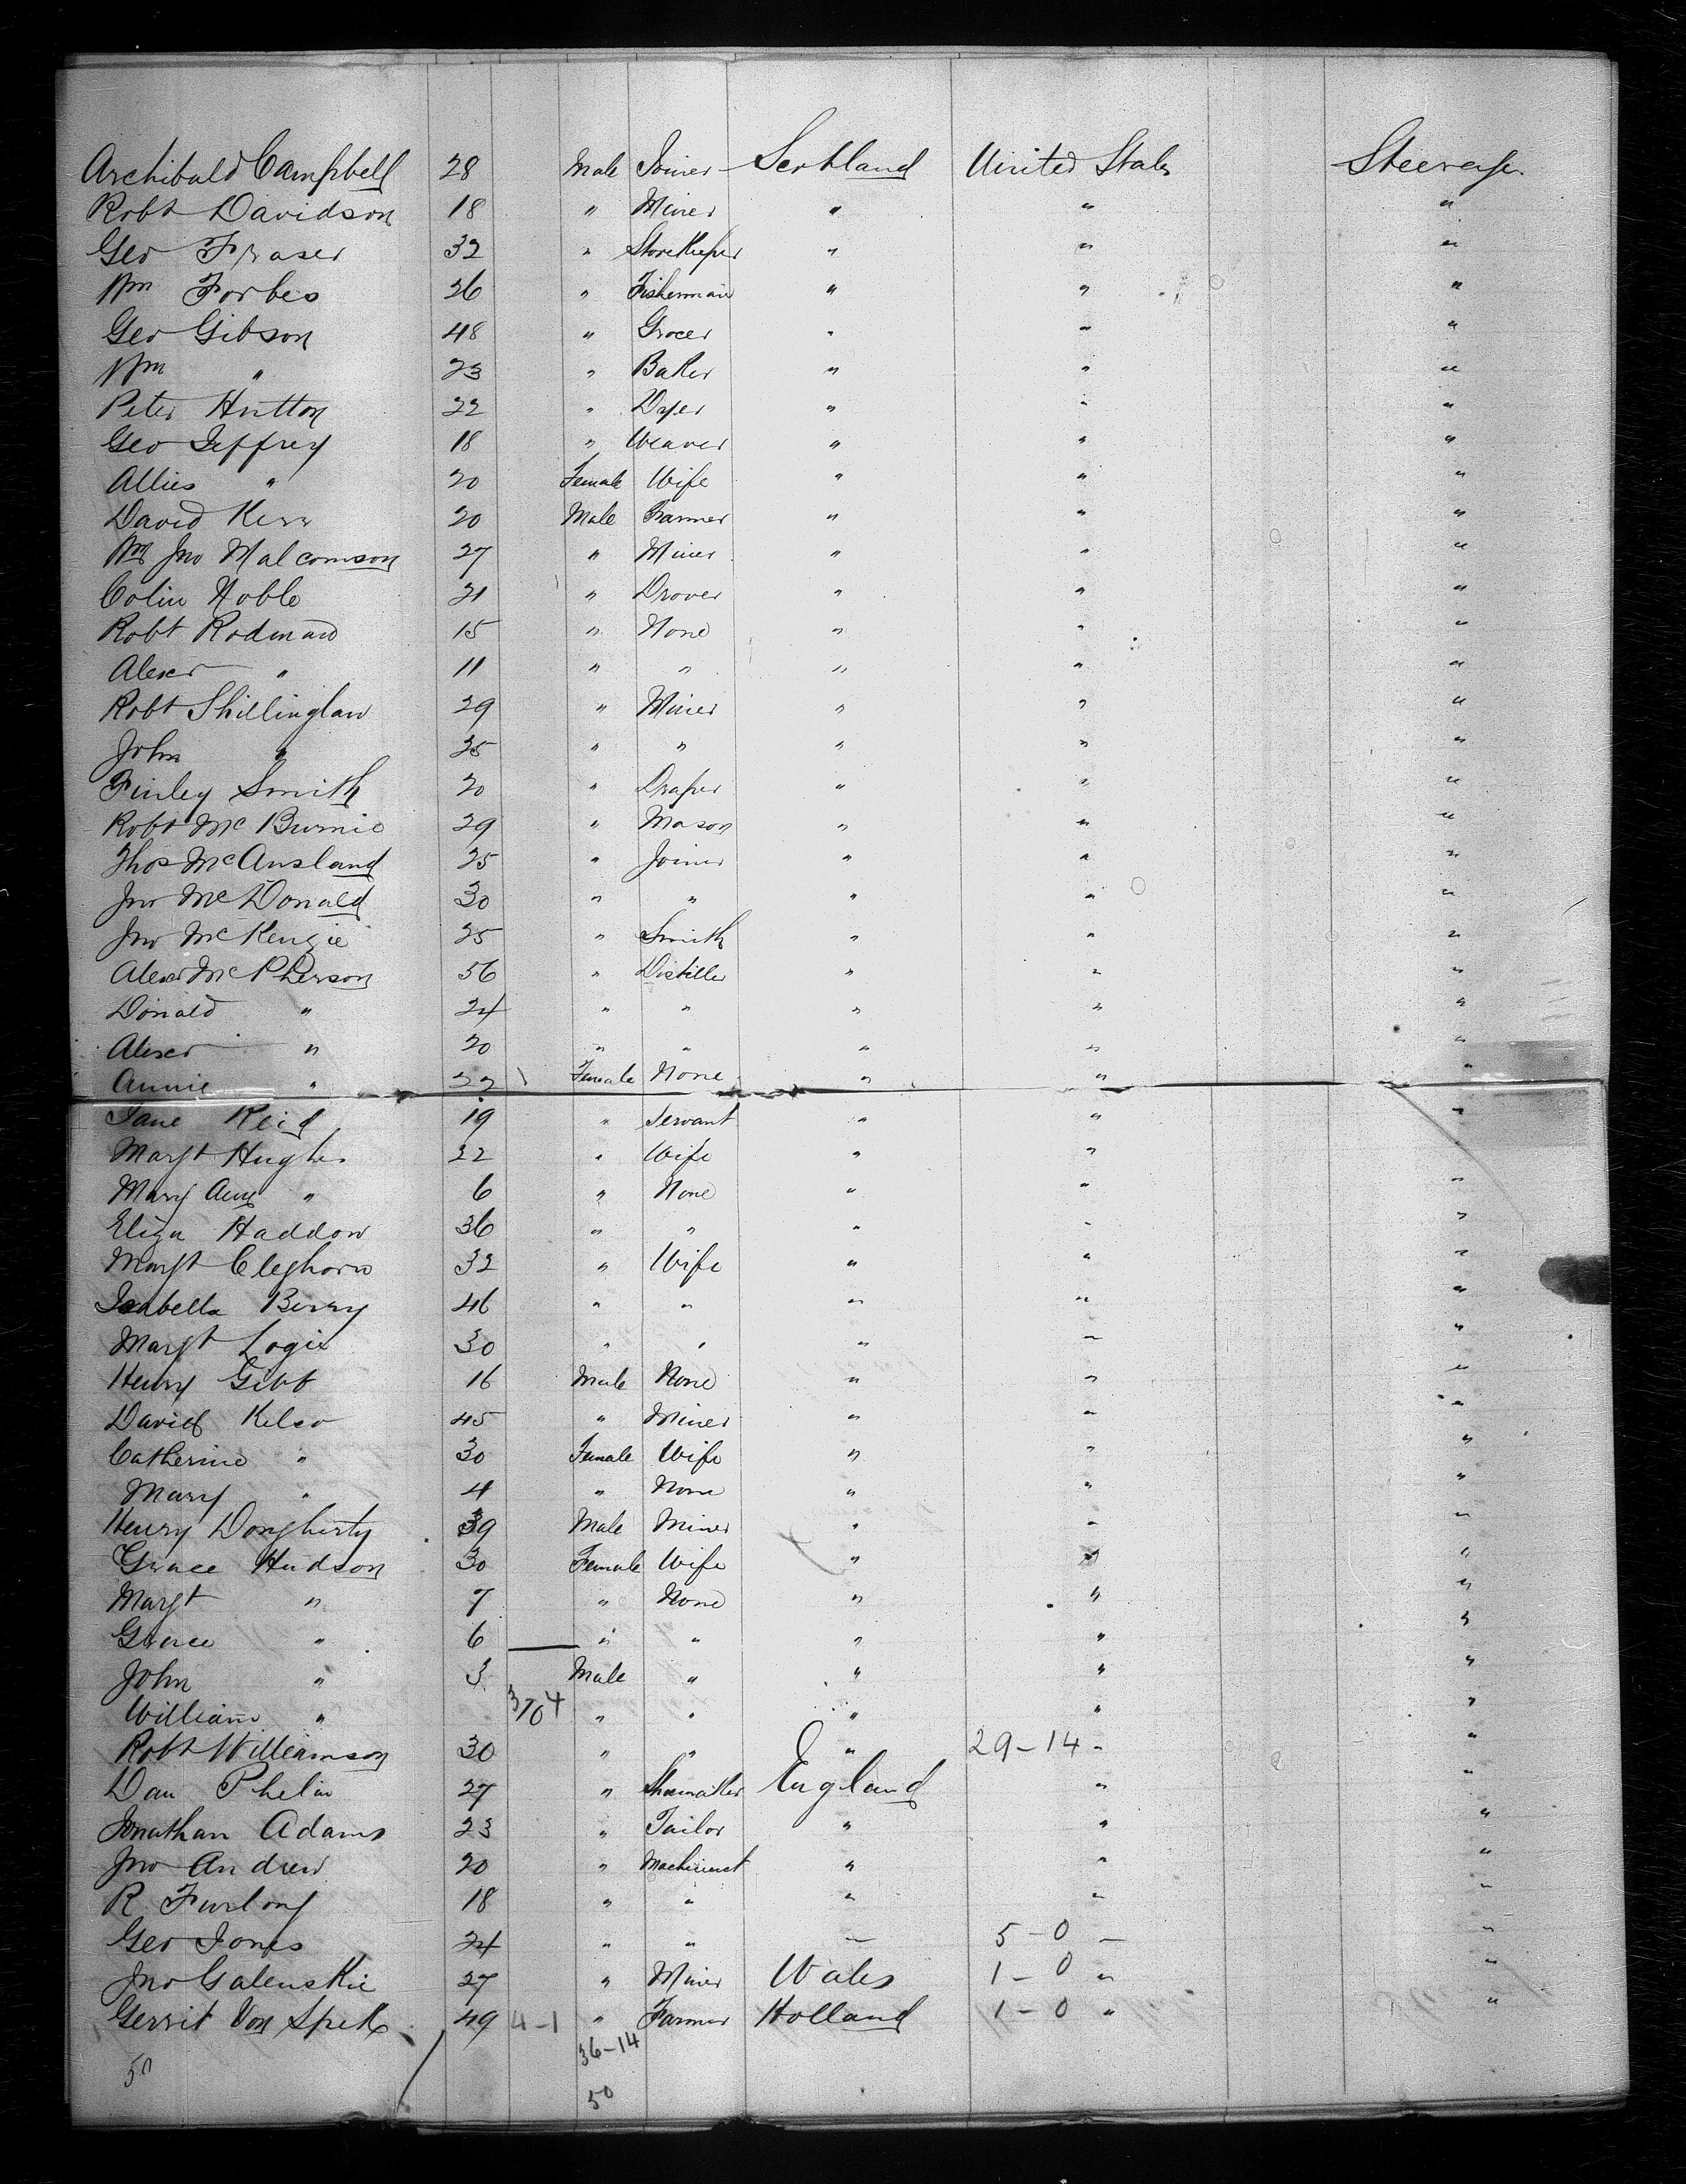 Archibald Campbell 28 Male Joiner Scotland United States Steerage
Robt Davidson 18 " Miner " " "
Geo Fraser 32 " Storekeeper " " "
Wm Forbes 26 " Fisherman " " "
Geo Gibson 48 " Grocer " " "
Wm " 23 " Baker " " "
Peter Hutton 22 " Dyer " " "
Geo Jeffrey 18 " Weaver " " "
Allies " 20 Female Wife " " "
David Kerr 20 Male Farmer " " "
Wm Jno Malcomson 27 " Miner " " "
Colin Noble 21 " Drover " " "
Robt Rodman 15 " None " " "
Alexr " 11 " " " " "
Robt Shillinglaw 29 " Miner " " "
John " 25 " " " " "
Finley Smith 20 " Draper " " "
Robt McBurnie 29 " Mason " " "
Thos McAusland 25 " Joiner " " "
Jno McDonald 30 " " " " "
Jno McKenzie 25 " Smith " " "
Alexr McPherson 56 " Distiller " " "
Donald " 24 " " " " "
Alexr " 20 " " " " "
Annie " 22 Female None " " "
Jane Reid 19 " Servant " " "
Margt Hughes 22 " Wife " " "
Mary Ann " 6 " None " " "
Eliza Haddow 36 " " " " "
Margt Cleghorn 32 " Wife " " "
Isabella Berry 46 " " " " "
Margt Logie 30 " " " " "
Henry Gibb 16 Male None " " "
David Kelso 45 " Miner " " "
Catherine " 30 Female Wife " " "
Mary " 4 " None " " "
Henry Dougherty 39 Male Miner " " "
Grace Hudson 30 Female Wife " " "
Margt " 7 " None " " "
Grace " 6 " " " " "
John " 3 Male " " " "
William " " " " " "
Robt Williamson 30 " " " 29-14 " "
Dan Phelin 27 " Shoemaker England " "
Jonathan Adams 23 " Tailor " " "
Jno Andrew 20 " Machinist " " "
R. Furlong 18 " " " " "
Geo Jones 24 " " " 5-0 " "
Jno Galenskie 27 " Miner Wales 1-0 " "
Gerrit Von Spek 49 4-1 " Farmer Holland 1-0 " "
36-14
50 50